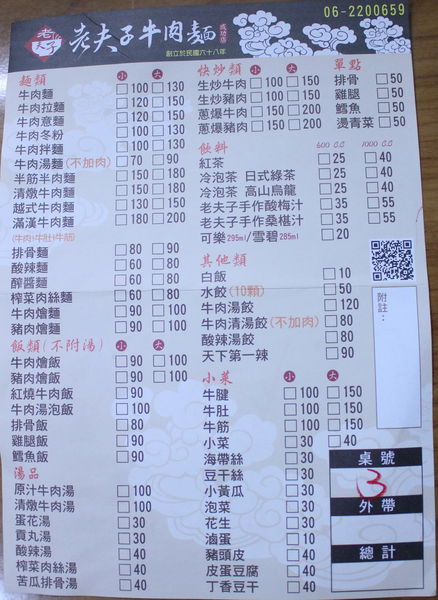 06-2200659
老夫子
老夫子牛肉麵 成功店
創立於民國六十八年
麵類 小 大
牛肉麵 □100 □130
牛肉拉麵 □120 □150
牛肉意麵 □120 □150
牛肉冬粉 □100 □130
牛肉拌麵 □100 □130
牛肉湯麵(不加肉) □70 □90
半筋半肉麵 □150 □180
清燉牛肉麵 □150 □180
越式牛肉麵 □130 □160
滿漢牛肉麵 □180 □200
排骨麵 □80 □90
酸辣麵 □60 □80
醡醬麵 □60 □80
榨菜肉絲麵 □60 □80
牛肉燴麵 □90 □100
豬肉燴麵 □90 □100
飯類(不附湯) 小 大
牛肉燴飯 □90 □100
豬肉燴飯 □90 □100
紅燒牛肉飯 □90
牛肉湯泡飯 □100
排骨飯 □80
雞腿飯 □90
鱈魚飯 □90
湯品
原汁牛肉湯 □100
清燉牛肉湯 □100
蛋花湯 □30
貢丸湯 □30
酸辣湯 □40
榨菜肉絲湯 □40
苦瓜排骨湯 □40
快炒類 小 大
生炒牛肉 □100 □150
生炒豬肉 □100 □150
蔥爆牛肉 □150 □200
蔥爆豬肉 □150 □200
飲料 600 C.C 1000 C.C
紅茶 □25 □40
冷泡茶 日式綠茶 □25 □40
冷泡茶 高山烏龍 □25 □40
老夫子手作酸梅汁 □35 □55
老夫子手作桑椹汁 □35 □55
可樂295ml/雪碧285ml □20
其他類
白飯 □10
水餃(10顆) □50
牛肉湯餃 □120
牛肉清湯餃(不加肉) □80
酸辣湯餃 □80
天下第一辣 □90
小菜 小 大
牛腱 □100 □150
牛肚 □100 □150
牛筋 □100 □150
小菜 □30 □40
海帶絲 □30
豆干絲 □30
小黃瓜 □30
泡菜 □30
花生 □30
滷蛋 □10
豬頭皮 □40
皮蛋豆腐 □40
丁香豆干 □40
單點
排骨 □50
雞腿 □50
鱈魚 □50
燙青菜 □50
附註：
桌號
3
外帶
總計